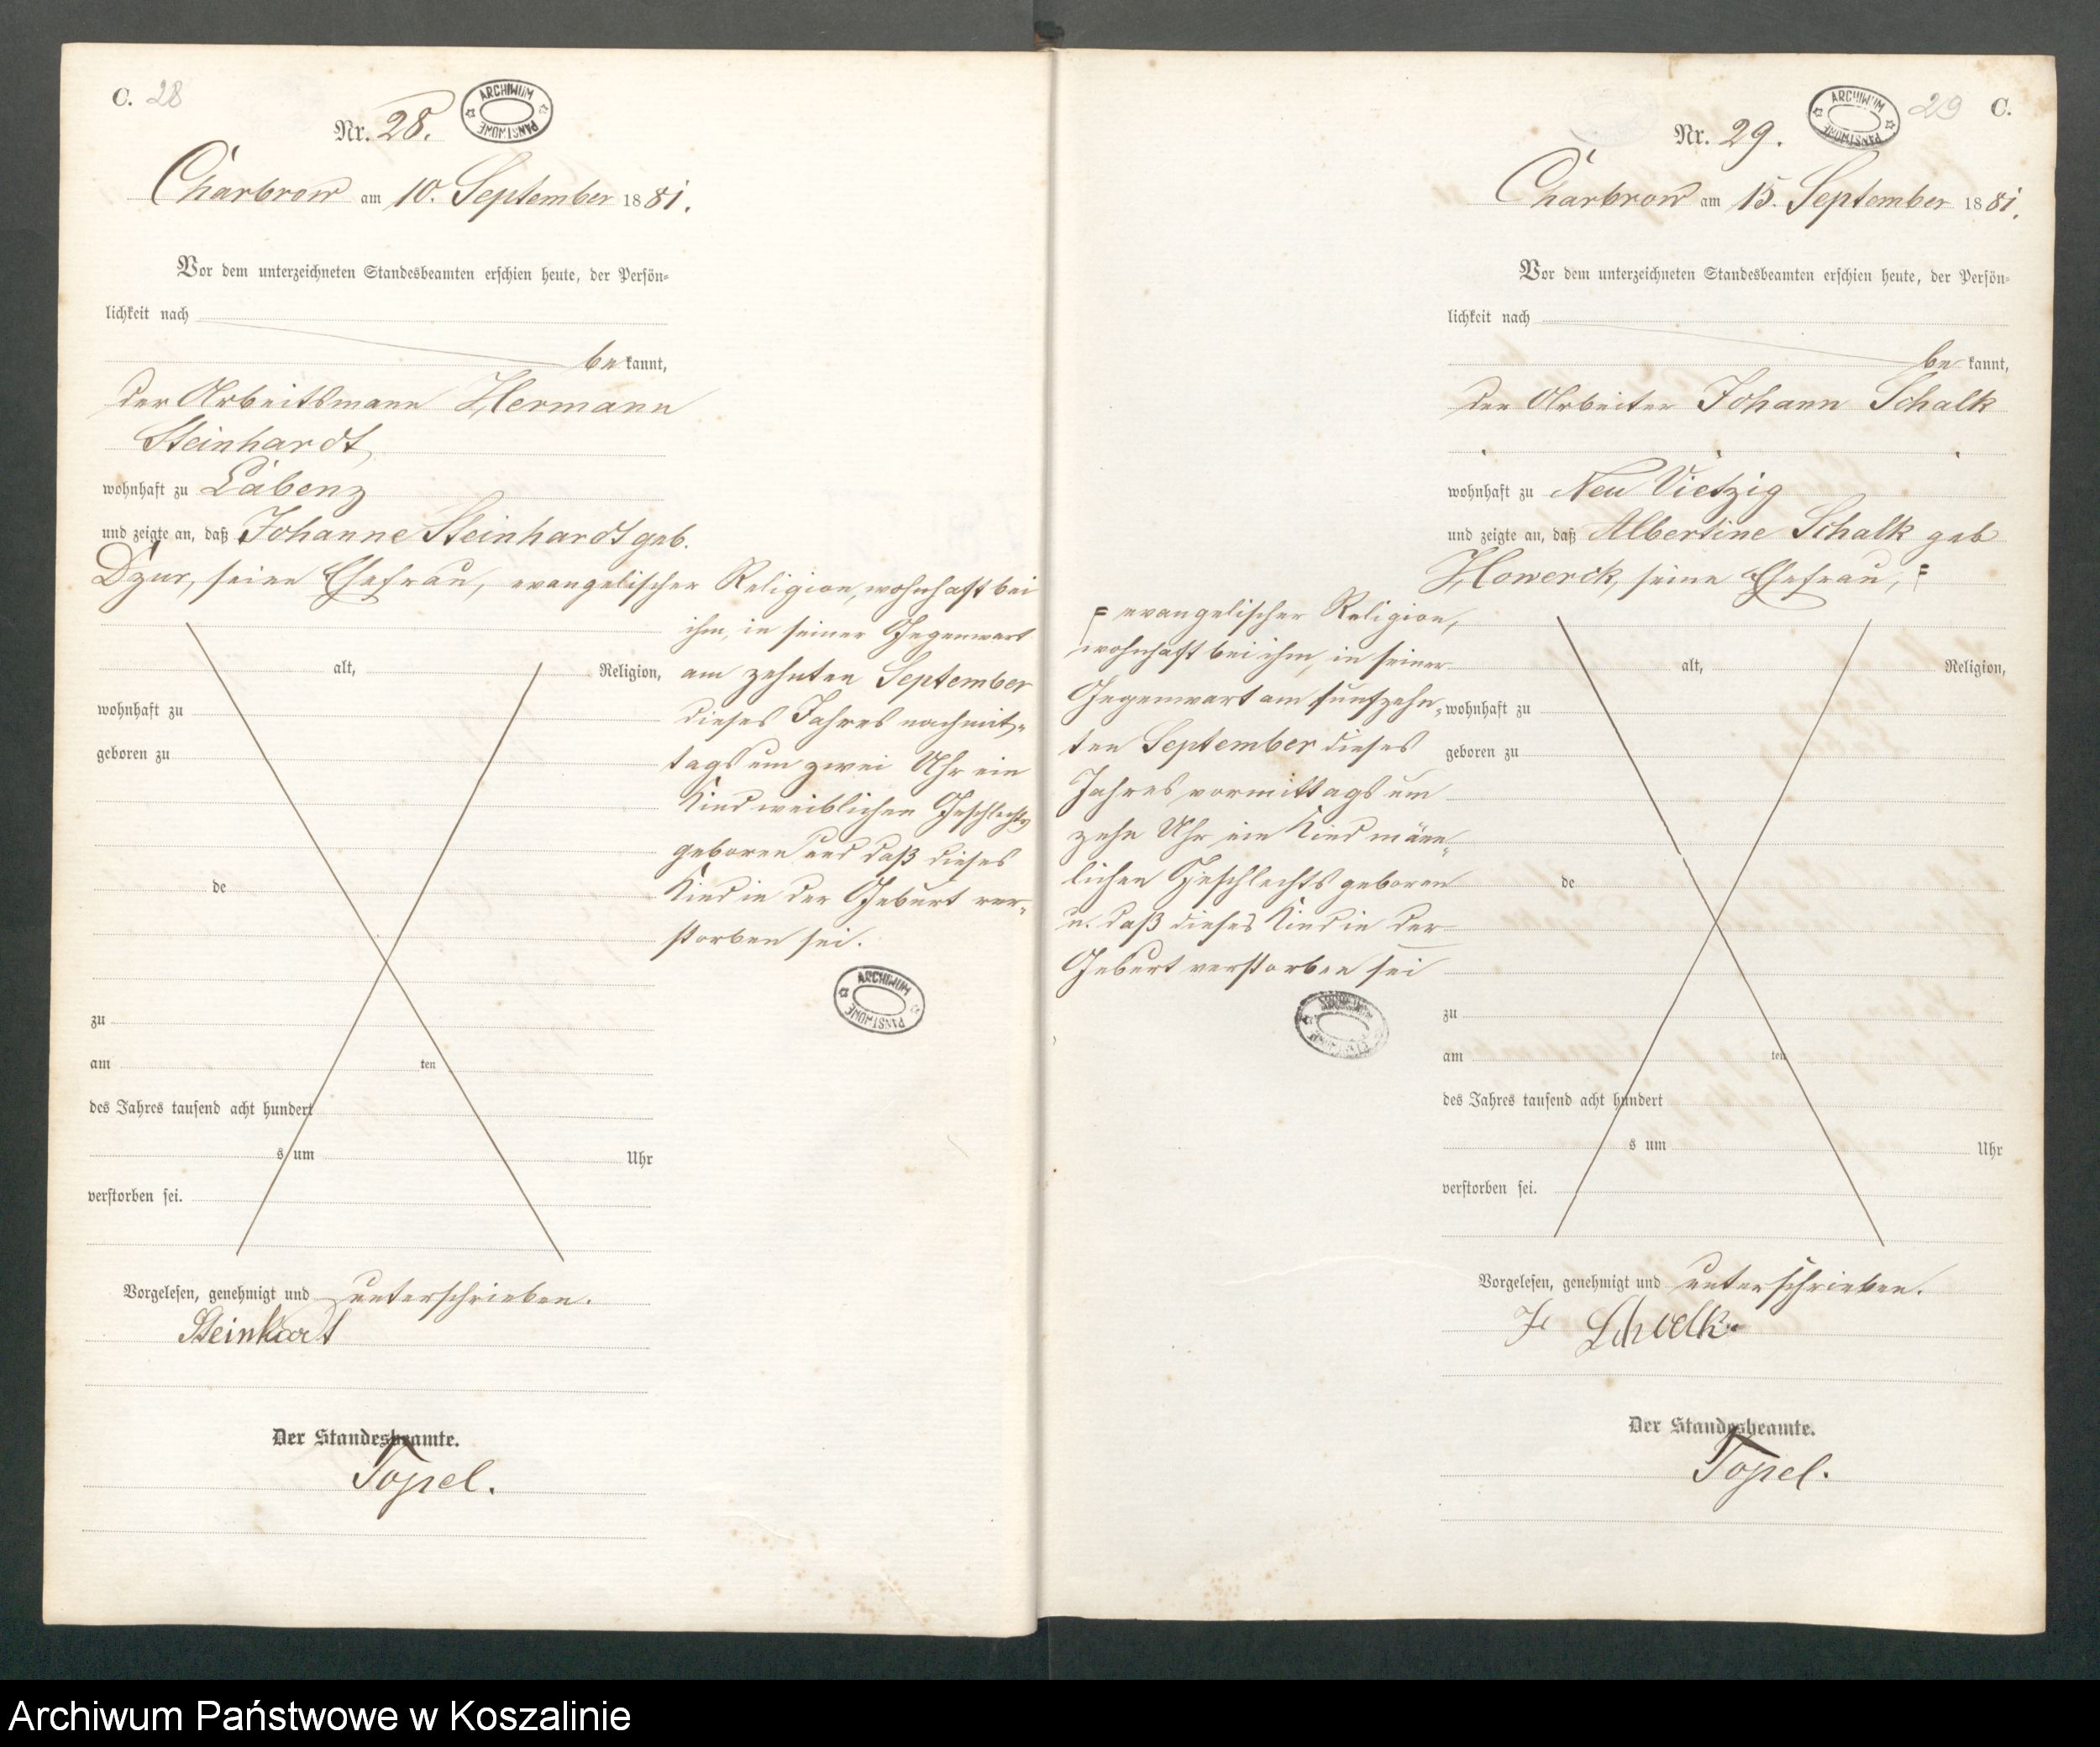 C. 28
Nr. 28.
ARCHIWUM PAŃSTWOWE
Charbrow am 10. September 1881.
Vor dem unterzeichneten Standesbeamten erschien heute, der Persön-
lichkeit nach
bekannt,
der Arbeitsmann Hermann
Steinhardt,
wohnhaft zu Labenz
und zeigte an, daß Johanne Steinhardt geb.
Dzur, seine Ehefrau, evangelischer Religion, wohnhaft bei
ihm, in seiner Gegenwart
am zehnten September
dieses Jahres nachmit-
tags um zwei Uhr ein
Kind weiblichen Geschlechts
geboren und daß dieses
Kind in der Geburt ver-
storben sei.
ARCHIWUM PAŃSTWOWE
alt, Religion,
wohnhaft zu
geboren zu
de
zu
am ten
des Jahres tausend acht hundert
s um Uhr
verstorben sei.
Vorgelesen, genehmigt und unterschrieben.
Steinhardt
Der Standesbeamte.
Topel.
29 C.
Nr. 29.
ARCHIWUM PAŃSTWOWE
Charbrow am 15. September 1881.
Vor dem unterzeichneten Standesbeamten erschien heute, der Persön-
lichkeit nach
bekannt,
der Arbeiter Johann Schalk
wohnhaft zu Neu Vietzig
und zeigte an, daß Albertine Schalk geb
Howerck, seine Ehefrau,
evangelischer Religion,
wohnhaft bei ihm, in seiner
Gegenwart am funfzehn-
ten September dieses
Jahres vormittags um
zehn Uhr ein Kind männ-
lichen Geschlechts geboren
u. daß dieses Kind in der
Geburt verstorben sei
ARCHIWUM PAŃSTWOWE
alt, Religion,
wohnhaft zu
geboren zu
de
zu
am ten
des Jahres tausend acht hundert
s um Uhr
verstorben sei.
Vorgelesen, genehmigt und unterschrieben.
Schalk
Der Standesbeamte.
Topel.
Archiwum Państwowe w Koszalinie